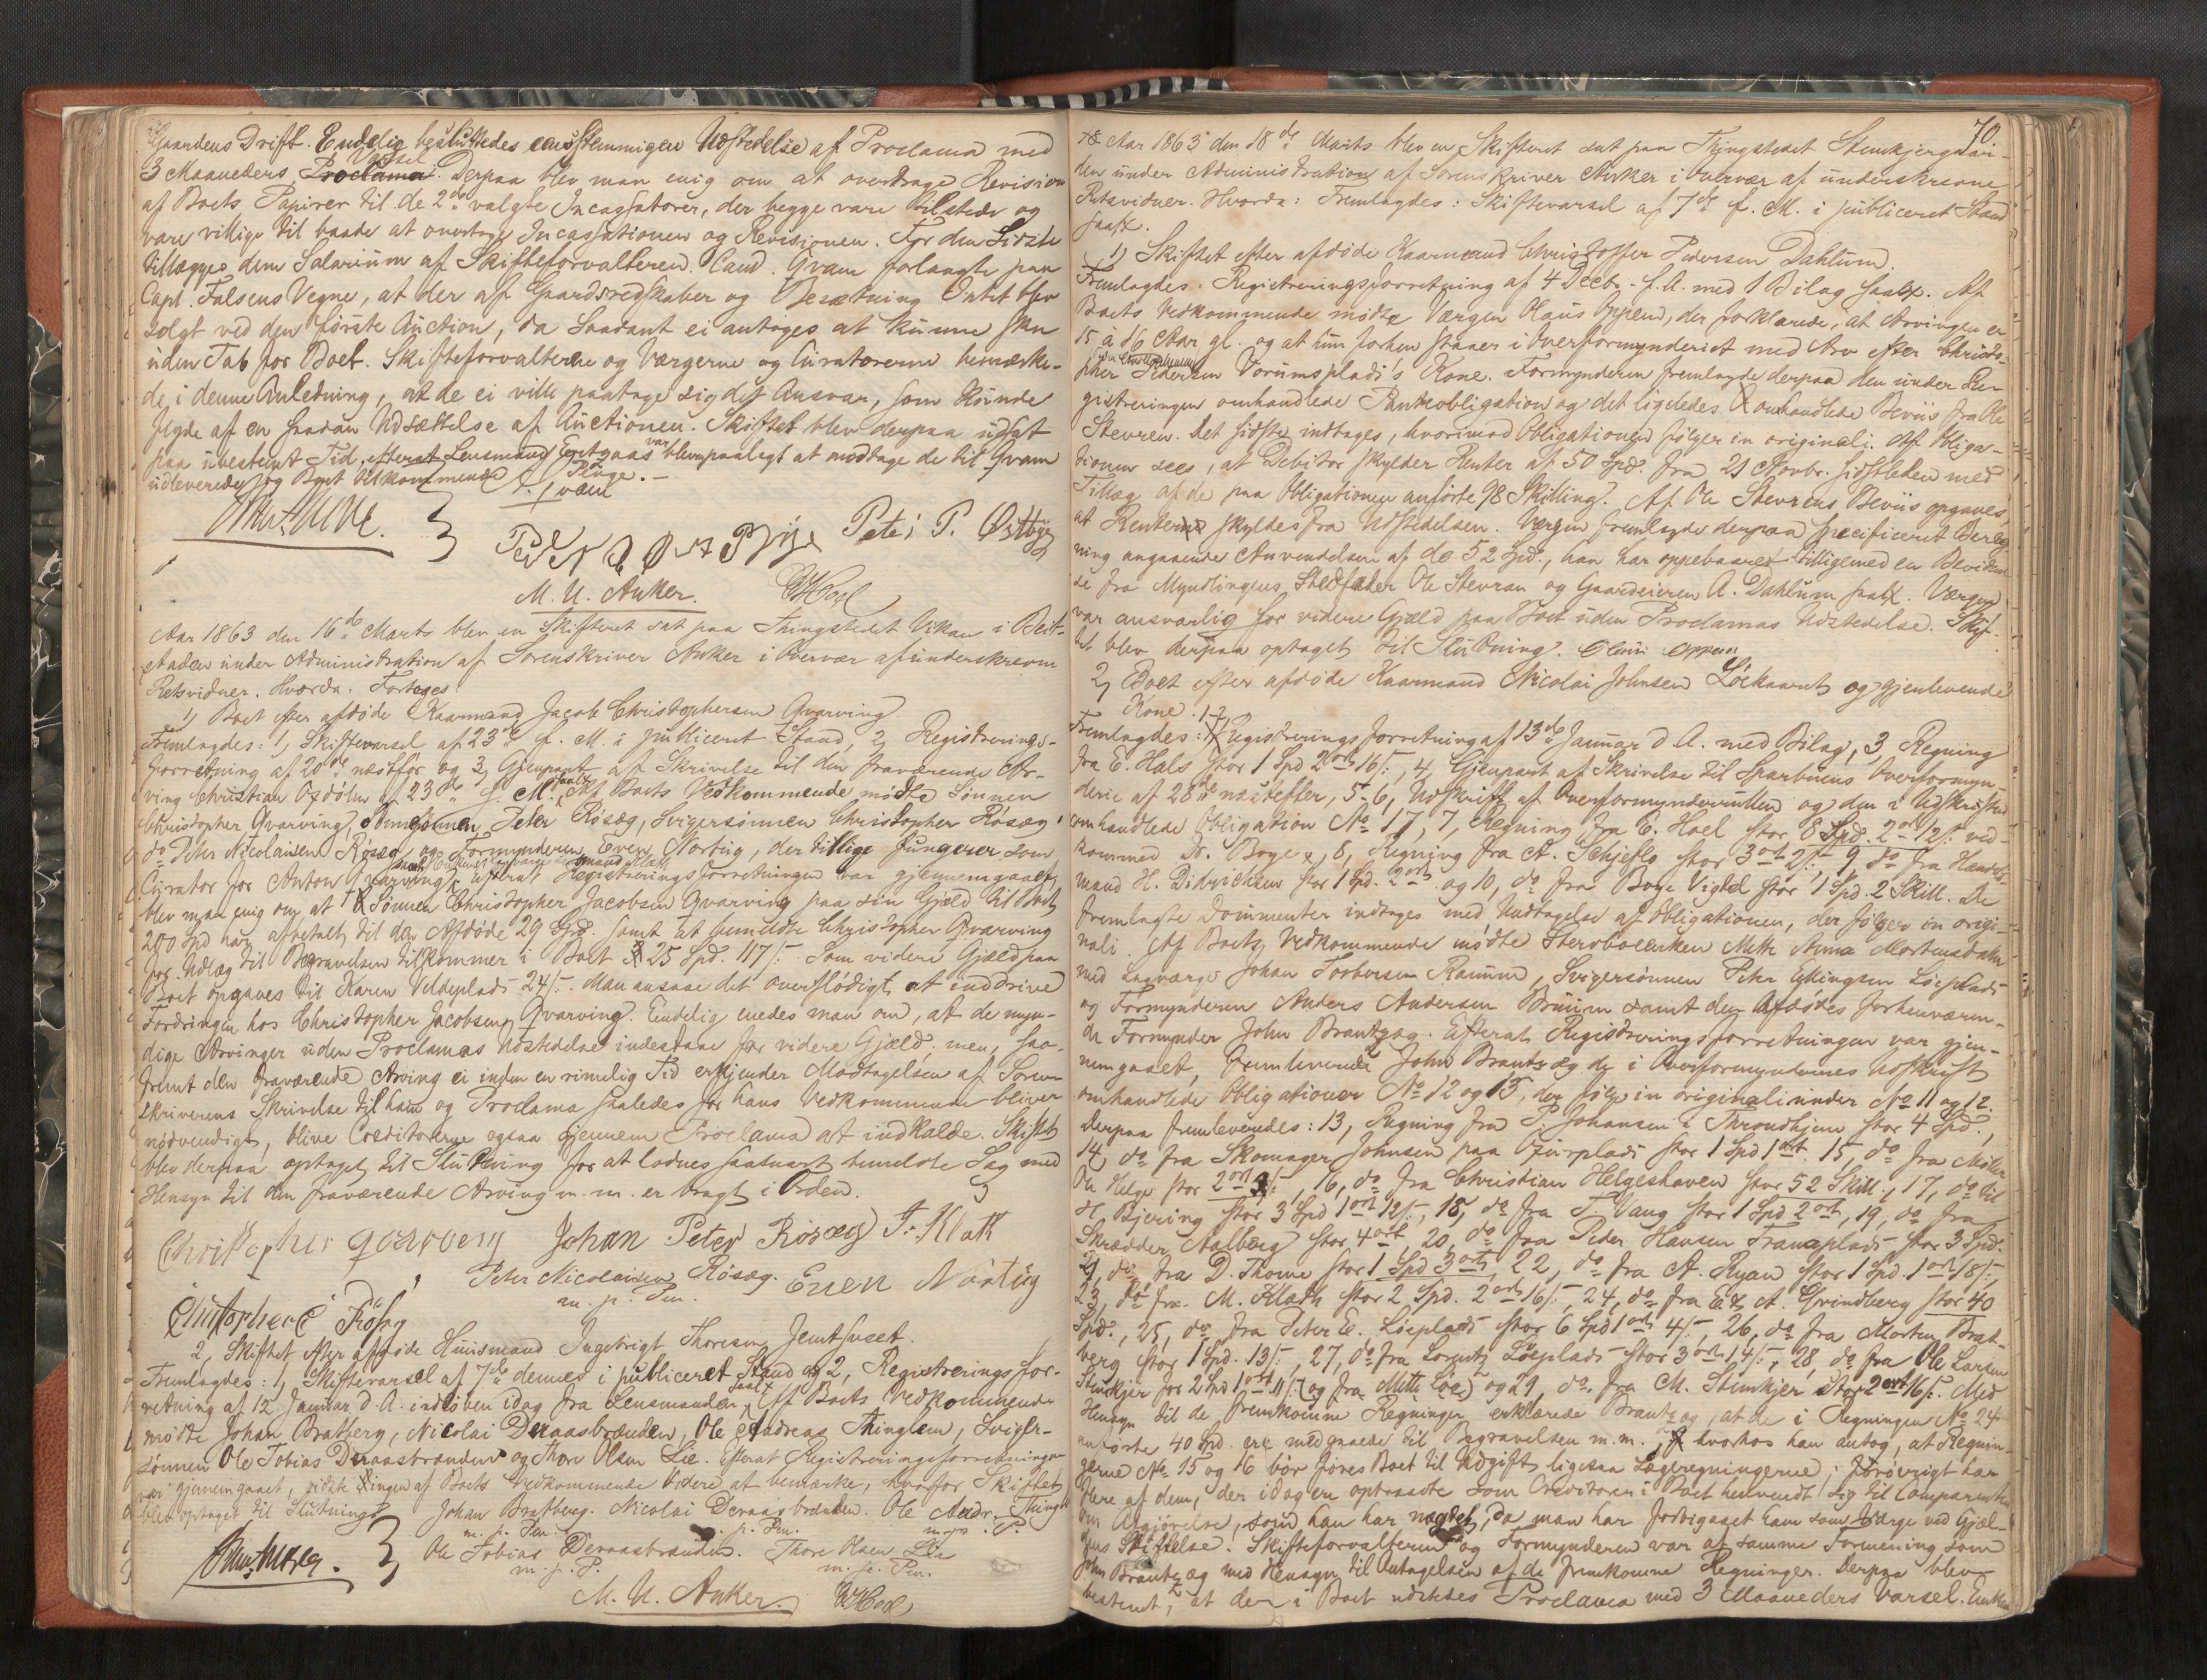 Gaardens Drift. Endelig besluttedes eenstemmigen Udstedelse af Proclama med
3 Maaneders Varsel. Derpaa blev man enig om at overdrage Revision
af Boets Papirer til de 2de valgte Incassatorer, der begge vare tilstede og
vare villige til baade at overtage Incassationen og Revisionen. For den Sidste
tillægges dem Salarium af Skifteforvalteren. Cand. Qvam forlangte paa
Capt. Falsens Vegne, at der af Gaardsredskaber og Besætning Intet blev
solgt ved den første Auction, da Saadant ei antages at kunne skee
uden Tab for Boet. Skifteforvalteren og Værgerne og Curatorerne bemærke-
de i denne Anledning, at de ei ville paatage sig det Ansvar, som kunde
flyde af en saadan Udsættelse af Auctionen. Skiftet blev derpaa udsat
paa ubestemt Tid, efterat Lensmand var blevn paalagt at modtage de til Qvam
udleverede og Boet vedkommende Penge. -
Qvam
Peter P. Østbye
M. U. Anker. Hoel
Aar 1863 den 16de Marts blev en Skifteret sat paa Thingstedet Vikan i Beit-
staden under Administration af Sorenskriver Anker i Overvær af underskrevne
Retsvidner. Hvorda. Foretoges
1, Boet efter afdøde Kaarmand Jacob Christophersen Qvarving.
Fremlagdes: 1, Skiftevarsel af 23de f. M. i publiceret Stand, 2, Registrerings-
forretning af 20de næstfør og 3, Gjenpart af Skrivelse til den fraværende Ar-
ving Christian Ofdølen af 23de f. M. saalt. Af Boets Vedkommende mødte Sønnen
Christopher Qvarving, Peter Røsæg, Svigersønnen Christopher Røsæg,
do Peter Nicolaisen Røsæg og Formynderen Even Nortug, der tillige fungerer som
Curator for Anton Qvarving, efterat Registreringsforretningen var gjennemgaaet,
blev man enig om, at Sønnen Christopher Jacobsen Qvarving paa sin Gjæld til Boet
200 Spd har afbetalt til den Afdøde 29 Spd. samt at bemeldte Christopher Qvarving
for Udlæg til Begravelsen tilkommer i Boet 25 Spd. 117 /-. Som videre Gjæld paa
Boet opgaves til Karen Veldeplads 24 /-. Man ansaae det overflødigt at inddrive
Fordringen hos Christopher Jacobsen Qvarving. Endelig enedes man om, at de myn-
dige Arvinger uden Proclamas Udstedelse indestaae for videre Gjæld, men, saa-
fremt den fraværende Arving ei inden en rimelig Tid erkjender Modtagelsen af Soren-
skriverens Skrivelse til ham og Proclama saaledes for hans Vedkommende bliver
nødvendigt, blive Creditorerne ogsaa gjennem Proclama at indkalde. Skiftet
blev derpaa optaget til Slutning for at lodnes saasnart bemeldte Sag med
Hensyn til den fraværende Arving m. m. er bragt i Orden.
Christopher qvarveng Johan Peter Røsæg F. Klath
Peter Nicolaisen Røsæg. Even Nortug
m. p. Pen.
Christopher Røsæg
2, Skiftet efter afdøde Huusmand Ingebrigt Thoresen Jemtsveet.
Fremlagdes: 1, Skiftevarsel af 7de dennes i publiceret Stand og 2, Registreringsfor-
retning af 12 Januar d. A. indløben idag fra Lensmanden saalt. Af Boets Vedkommende
mødte Johan Bratberg, Nicolai Deraasbrænden, Ole Andreas Thinglem, Sviger-
sønnen Ole Tobias Deraasbrænden og Thore Olsen Lie. Efterat Registreringsforretningen
var gjennemgaaet, vidste ingen af Boets Vedkommende Videre at bemærke, hvorfor Skiftet
blev optaget til Slutning. Johan Bratberg. Nicolai Deraasbrænden. Ole Andr. Thingl
m. p. Pen. m. p. Pen. m. p. P.
Ole Tobias Deraasbrænden. Thore Olsen Lie
m. p. P. m. p. Pen.
M. U. Anker. Hoel
70
Aar 1863 den 18de Marts blev en Skifteret sat paa Thingstedet Steenkjergaar-
den under Administration af Sorenskriver Anker i Overvær af underskrevne
Retsvidner. Hvorda: Fremlagdes: Skiftevarsel af 7de f. M. i publiceret Stand
saalt.
1, Skiftet efter afdøde Kaarmand Christopher Pedersen Dahlum.
Fremlagdes: Registreringsforretning af 4 Decbr. f. A. med 1 Bilag saalt. Af
Boets Vedkommende mødte Værgen Olaus Oppem, der forklarede, at Arvingen er
15 à 16 Aar gl. og at hun forhen staaer i Overformynderiet med Arv efter Christo-
pher Pedersen Vorumsplads's Kone. Formynderen fremlagde derpaa den under Re-
gistreringen omhandlede Panteobligation og det ligeledes omhandlede Beviis fra Ole
Stevren. Det sidste indtages, hvorimod Obligationen følger in originali. Af Obliga-
tionen sees, at Debitor skylder Renter af 50 Spd. fra 21 Novbr. sidstleden med
Tillæg af de paa Obligationen anførte 98 Skilling. Af Ole Stevrens Beviis opgaves,
at Renterne skyldes fra Udstedelsen. Værgen fremlagde derpaa specificeret Bereg-
ning angaaende Anvendelsen af de 52 Spd., han har oppebaaret tilligemed en
fra Myndlingens Stedfader Ole Stevran og Gaardeieren A. Dahlum saalt. Værgen
var ansvarlig for videre Gjæld paa Boet uden Proclamas Udstedelse. Skif-
tet blev derpaa optaget til Slutning. Olaus oppem
2, Boet efter afdøde Kaarmand Nicolai Johnsen Løekaaret og gjenlevende
Kone.
Fremlagdes: 1-2, Registreringsforretning af 13de Januar d. A. med Bilag, 3, Regning
fra E. Hals stor 1 Spd 2 ort 16 /-, 4, Gjenpart af Skrivelse til Sparbuens Overformyn-
deri af 28de næstefter, 5-6, Udskrift af Overformynderrullen og den i Udskriften
omhandlede Obligation No 17, 7, Regning fra E. Hoel stor 8 Spd. 2 ort 12 /- ved-
kommed Dr. Boye, 8, Regning fra A. Schjeflo stor 3 ort 2 /-, 9 do fra Handels-
mand H. Didrichsen stor 1 Spd. 2 ort og 10, do fra Boye Vigtel stor 1 Spd. 2 Skill. De
fremlagte Documenter indtages med Undtagelse af Obligationen, der følger in origi-
nali. Af Boets Vedkommende mødte Stervboenken Mette Anna Mortensdatter
med Lagværge Johan Torbersen Ramnum, Svigersønnen Peter Ellingsen Løeplads
og Formynderen Anders Andersen Bruum samt den Afdødes forhenværen-
de Formynder John Brantzæg. Efterat Registreringsforretningen var gjen-
nemgaaet, fremleverede John Brantzæg de i Overformynderiets Udskrift
omhandlede Obligationer No 12 og 13, der følge in originali under No 11 og 12.
Derpaa fremleveredes: 13, Regning fra P. Johansen i Throndhjem stor 4 Spd.,
14, do fra Skomager Johnsen paa Ofurplads stor 1 Spd 1 ort 15, do fra Møller
Ole Helge stor 2 ort, 16, do fra Christian Helgeshaven stor 52 Skill., 17, do til
H. Bjering stor 3 Spd 1 ort 12 /-, 18, do fra T. Vang stor 1 Spd 2 ort, 19, do fra
Skrædder Aalberg stor 4 ort, 20, do fra Peder Hansen Tranaplads stor 3 Spd.
21, do fra D. Thorne stor 1 Spd 3 ort, 22, do fra A. Ryan stor 1 Spd. 1 ort 18 /-,
23, do fra M. Klæth stor 2 Spd. 2 ort 16 /-, 24, do fra E. & A. Grindberg stor 40
Spd., 25, do fra Peter E. Løeplads stor 6 Spd 1 ort 4 /-, 26, do fra Morten Brat-
berg stor 1 Spd. 13 /-, 27, do fra Lorentz Løeplads stor 3 ort 14 /-, 28, do fra Ole Larsen
Steenkjer for 2 Spd 1 ort 11 /- (og fra Mette Løe) og 29, do fra M. Steenkjer stor 2 ort 16 /-. Med
Hensyn til de fremkomne Regninger erklærede Brantzæg, at de i Regningen No 24
anførte 40 Spd. ere medgaaede til Begravelsen m. m., hvorhos han antog, at Regnin-
gerne No 15 og 16 bør føres Boet til Udgift ligesaa Lægeregningerne; forøvrigt har
flere af dem, der idag ere optraadte som Creditorer i Boet henvendt sig til Comparenten
om Afgjørelse, som han har nægtet, da man har forbigaaet ham som Værge ved Gjæl-
dens Stiftelse. Skifteforvalteren og Formynderen var af samme Formening som
John Brantzæg med Hensyn til Antagelsen af de fremkomne Regninger. Derpaa blev
bestemt, at der i Boet udstedes Proclama med 3 Maaneders Varsel. Enken